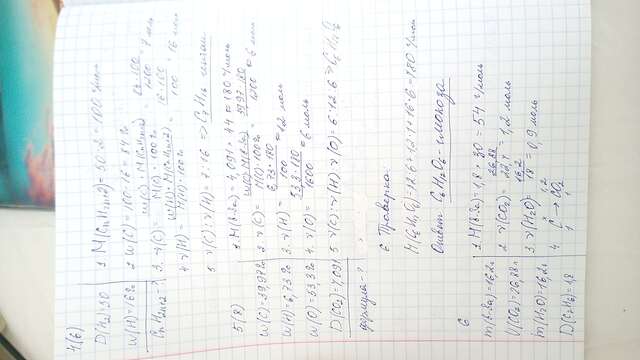 4(6)
D(H₂)=50
W(H)=16%
CnH2n+2-?
1 M(CnH2n+2)=50·2=100 г/моль
2 W(C)=100-16=84%
3. ν(C)= W(C)·M(CnH2n+2) / M(C)·100% = 84·100 / 1200 = 7 моль
4 ν(H)= W(H)·M(CnH2n+2) / M(H)·100% = 16·100 / 100 = 16 моль
5 ν(C):ν(H)=7:16 => C₇H₁₆ гептан
5(8)
W(C)=39,97%
W(H)=6,73%
W(O)=53,3%
D(CO₂)=4,091
формула-?
1 M(в.ва)=4,091·44=180 г/моль
2 ν(C)= W(C)·M(в.ва) / M(C)·100% = 39,97·180 / 1200 = 6 моль
3. ν(H)= 6,73·180 / 100 = 12 моль
4. ν(O)= 53,3·180 / 1600 = 6 моль
5 ν(C):ν(H):ν(O)=6:12:6 => C₆H₁₂O₆
6 Проверка:
M(C₆H₁₂O₆)=12·6+12·1+16·6=180 г/моль
Ответ: C₆H₁₂O₆-глюкоза
6
m(в.ва)=16,2г
V(CO₂)=26,88л
m(H₂O)=16,2г
D(C₂H₆)=1,8
1 M(в.ва)=1,8·30=54 г/моль
2 ν(CO₂)= 26,88 / 22,4 = 1,2 моль
3 ν(H₂O)= 16,2 / 18 = 0,9 моль
4 C → CO₂